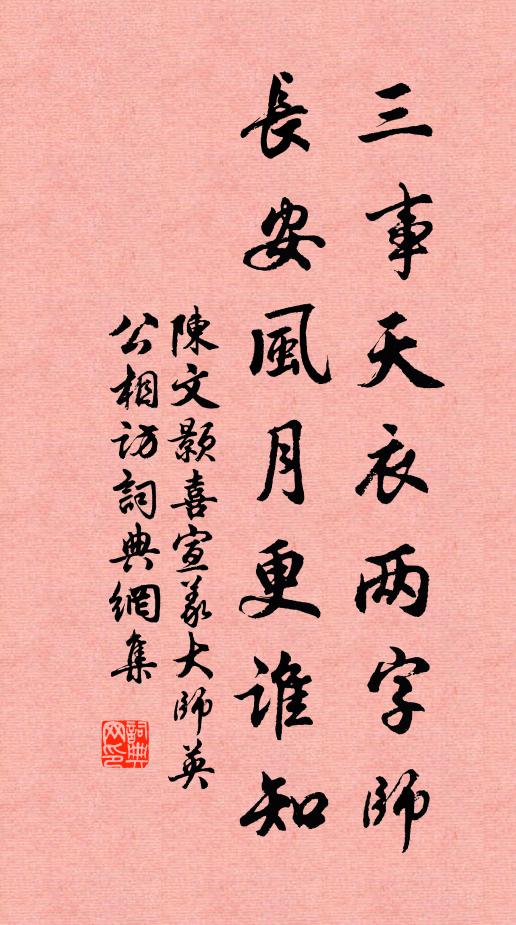 三事天衣两字師
長安風月更誰知
陳文顥喜宣義大師英
公相訪詞典網集
詞典网印